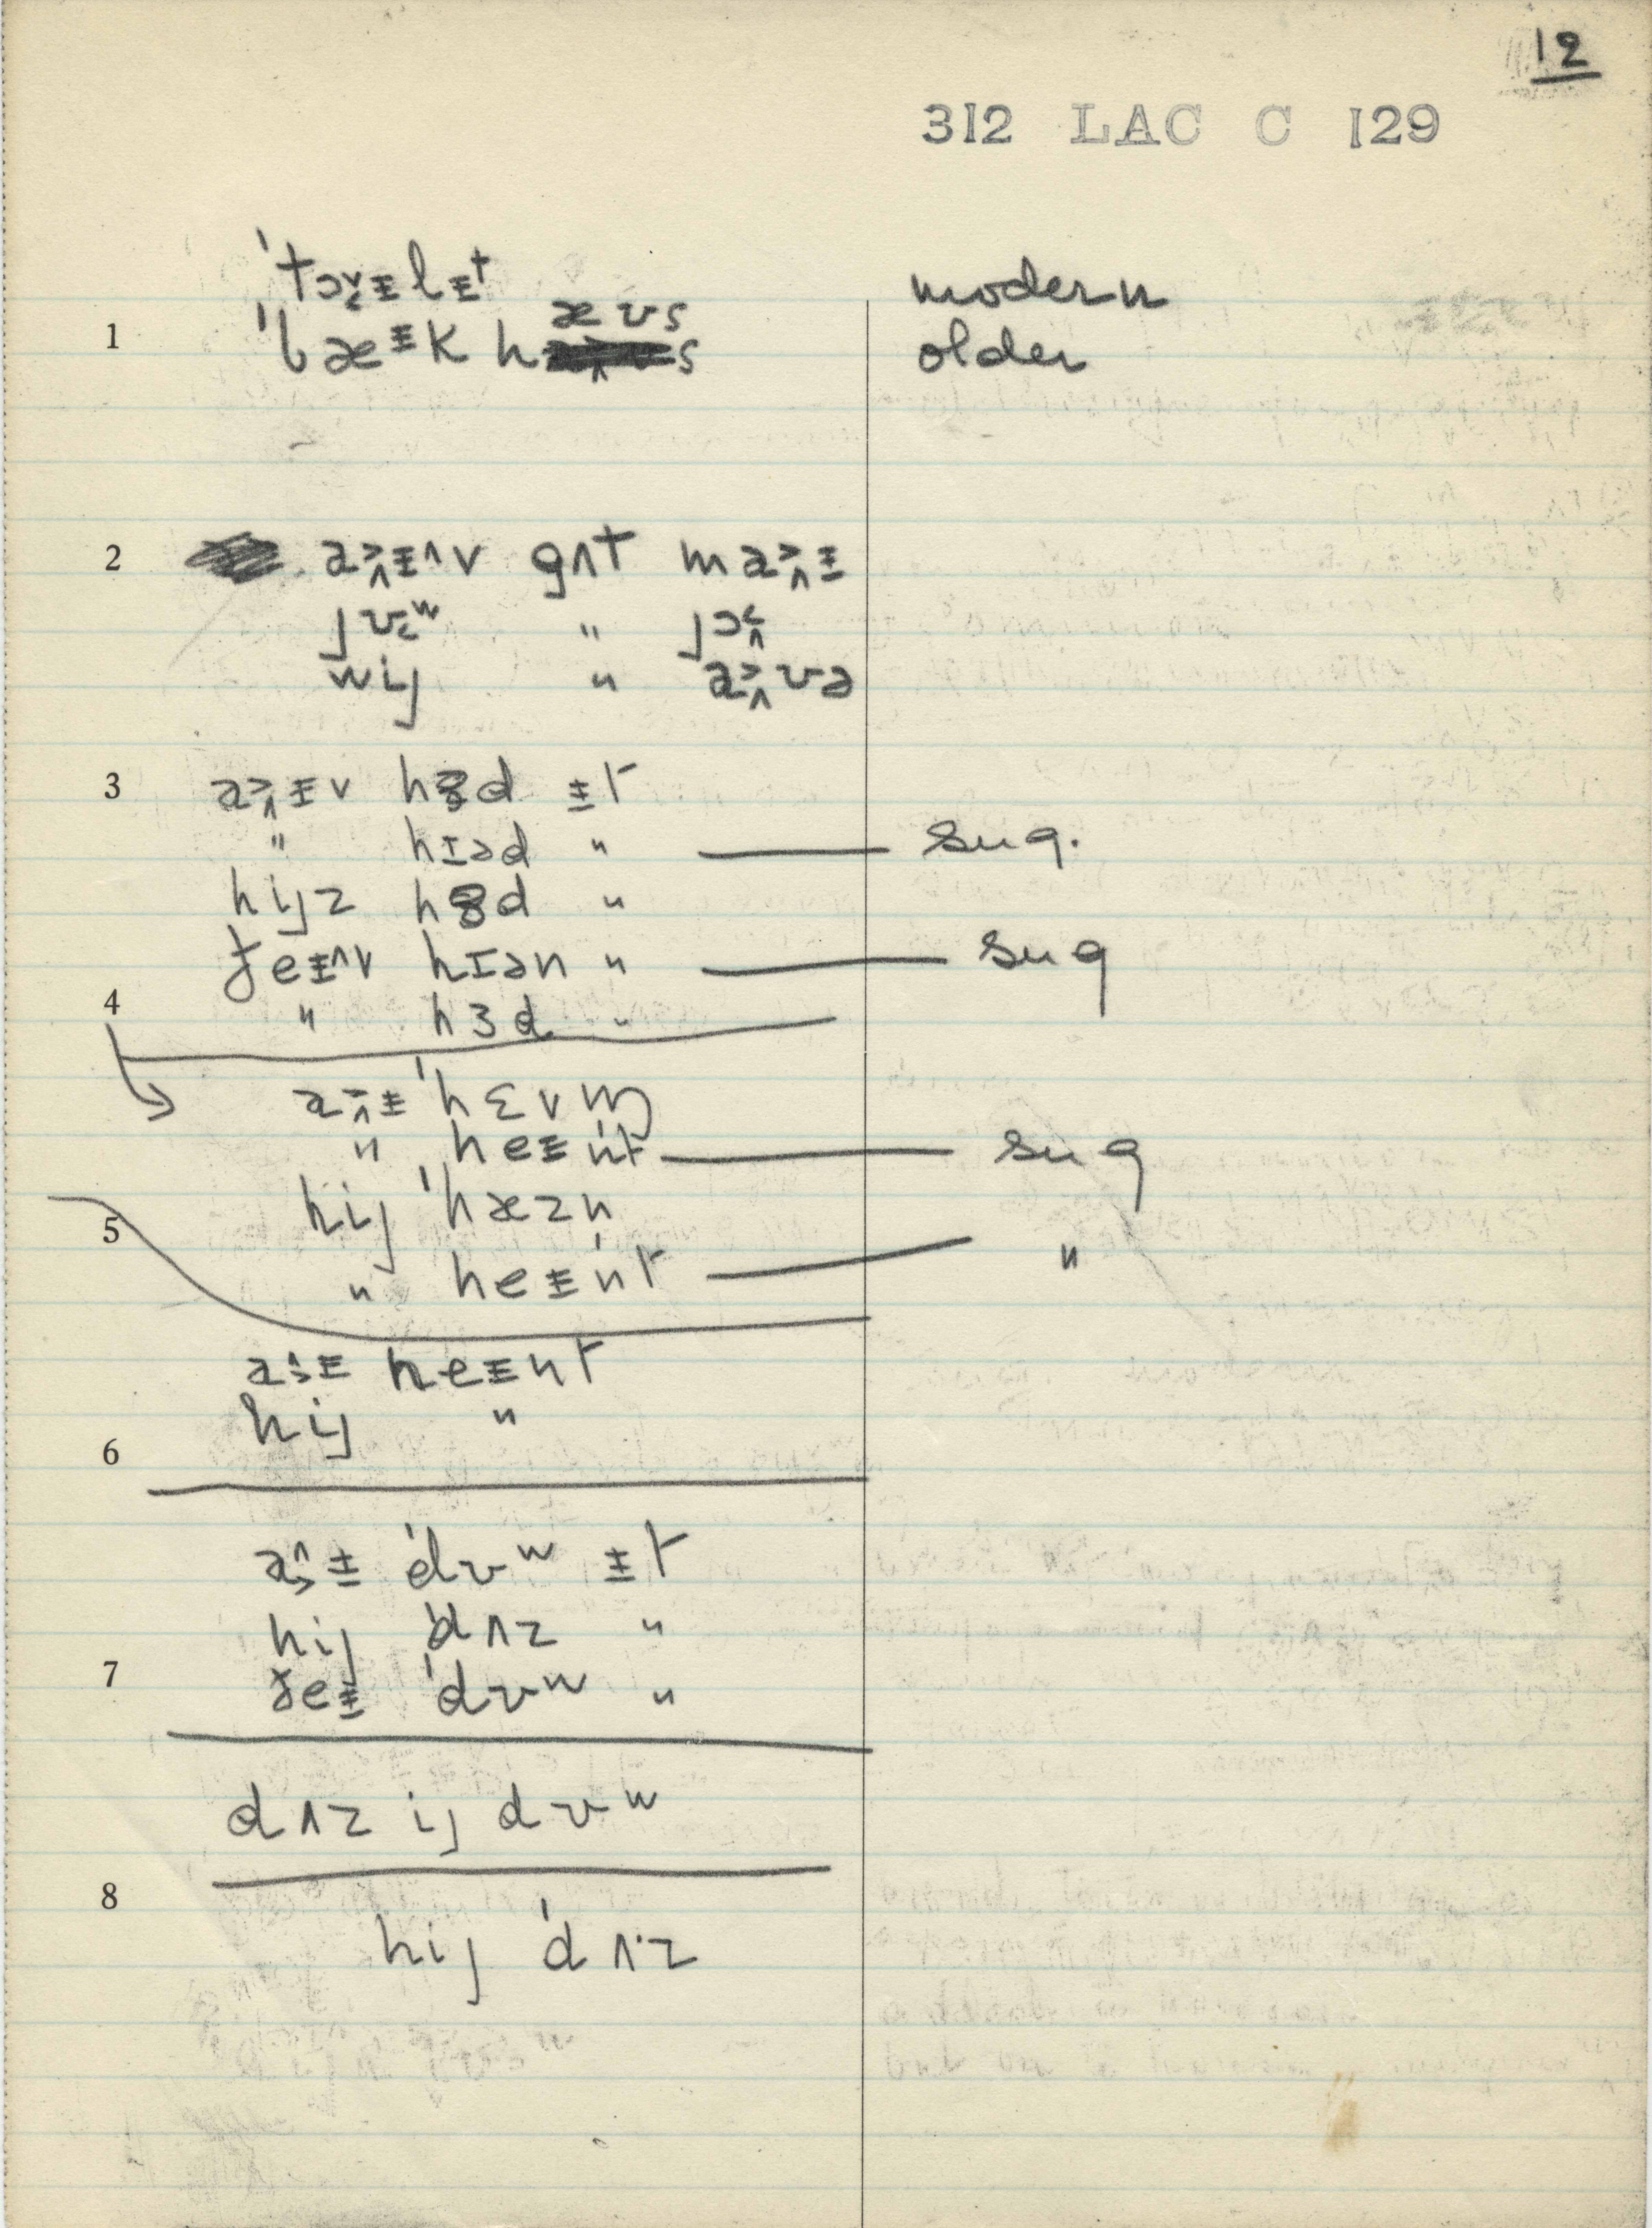 12
312 LAC C 129
ˈtɔɪlɪt modern
1 ˈbæɪk hæʊs older
2 aɪv gʌt maɪ
jʊʷ " jɔ
wij " aʊə
3 aɪv hɜd ɪt
" hɪəd " sug.
hijz hɜd "
ðeɪv hɪən " sug
4 " hɜd "
aɪ ˈhɛvm̩
" heɪn̩t sug
hij ˈhæzn̩
5 " heɪn̩t "
aɪ heɪnt
hij "
6
aɪ ˈdʊʷ ɪt
hij ˈdʌz "
7 ðeɪ ˈdʊʷ "
dʌz ij dʊʷ
8
hij ˈdʌ·z